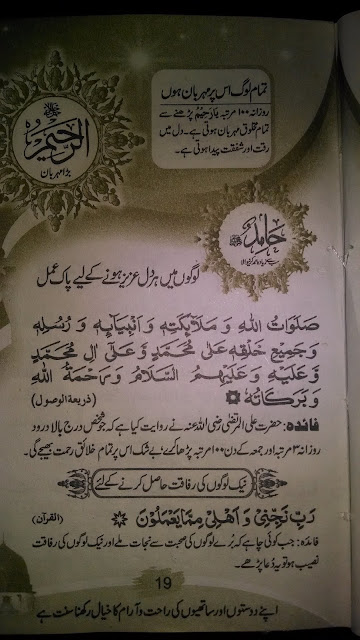 تمام لوگ اس پر مہربان ہوں
روزانہ ۱۰۰ مرتبہ یَارَحِیْمُ پڑھنے سے
تمام مخلوق مہربان ہوتی ہے۔ دل میں
رقت اور شفقت پیدا ہوتی ہے۔
الرحیم
بڑا مہربان
حامد ﷺ
لوگوں میں ہر دل عزیز ہونے کے لیے پاک عمل
صَلَوَاتُ اللهِ وَ مَلَآئِكَتِهٖ وَ اَنْبِيَآئِهٖ وَ رُسُلِهٖ
وَ جَمِيْعِ خَلْقِهٖ عَلٰى مُحَمَّدٍ وَّ عَلٰٓى اٰلِ مُحَمَّدٍ
وَّ عَلَيْهِ وَ عَلَيْهِمُ السَّلَامُ وَ رَحْمَةُ اللهِ
وَ بَرَكَاتُهٗ (ذریعۃ الوصول)
فائدہ: حضرت علی المرتضیٰ رضی اللہ عنہ نے روایت کیا ہے کہ جو شخص درج بالا درود
روزانہ ۳ مرتبہ اور جمعہ کے دن ۱۰۰ مرتبہ پڑھا کرے بے شک اس پر تمام خلائق رحمت بھیجے گی۔
نیک لوگوں کی رفاقت حاصل کرنے کے لئے
رَبِّ نَجِّنِیْ وَ اَهْلِیْ مِمَّا یَعْمَلُوْنَ (القرآن)
فائدہ: جب کوئی چاہے کہ بُرے لوگوں کی صحبت سے نجات ملے اور نیک لوگوں کی رفاقت
نصیب ہو تو یہ دُعا پڑھے۔
19
اپنے دوستوں اور ساتھیوں کی راحت و آرام کا خیال رکھنا سنت ہے